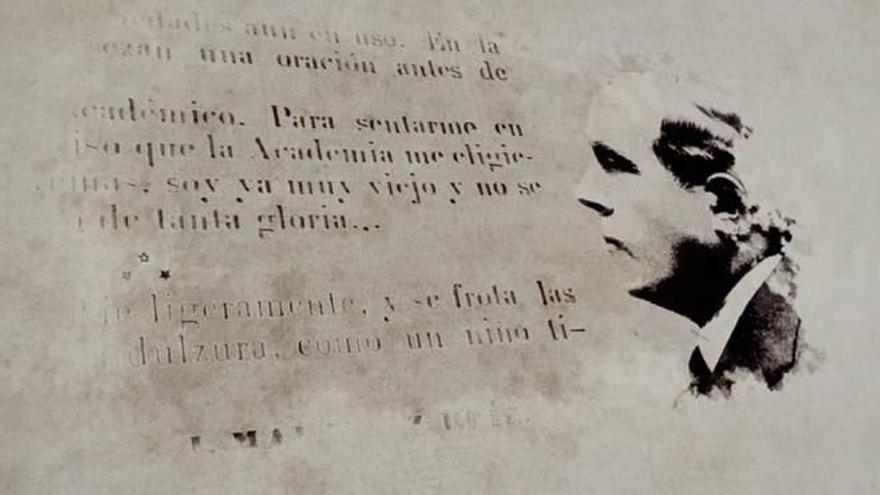 aun en uso. En la
una oración antes de
académico. Para sentarme en
que la Academia me eligie-
soy ya muy viejo y no se
de tanta gloria...
ligeramente, y se frota las
dulzura, como un niño ti-